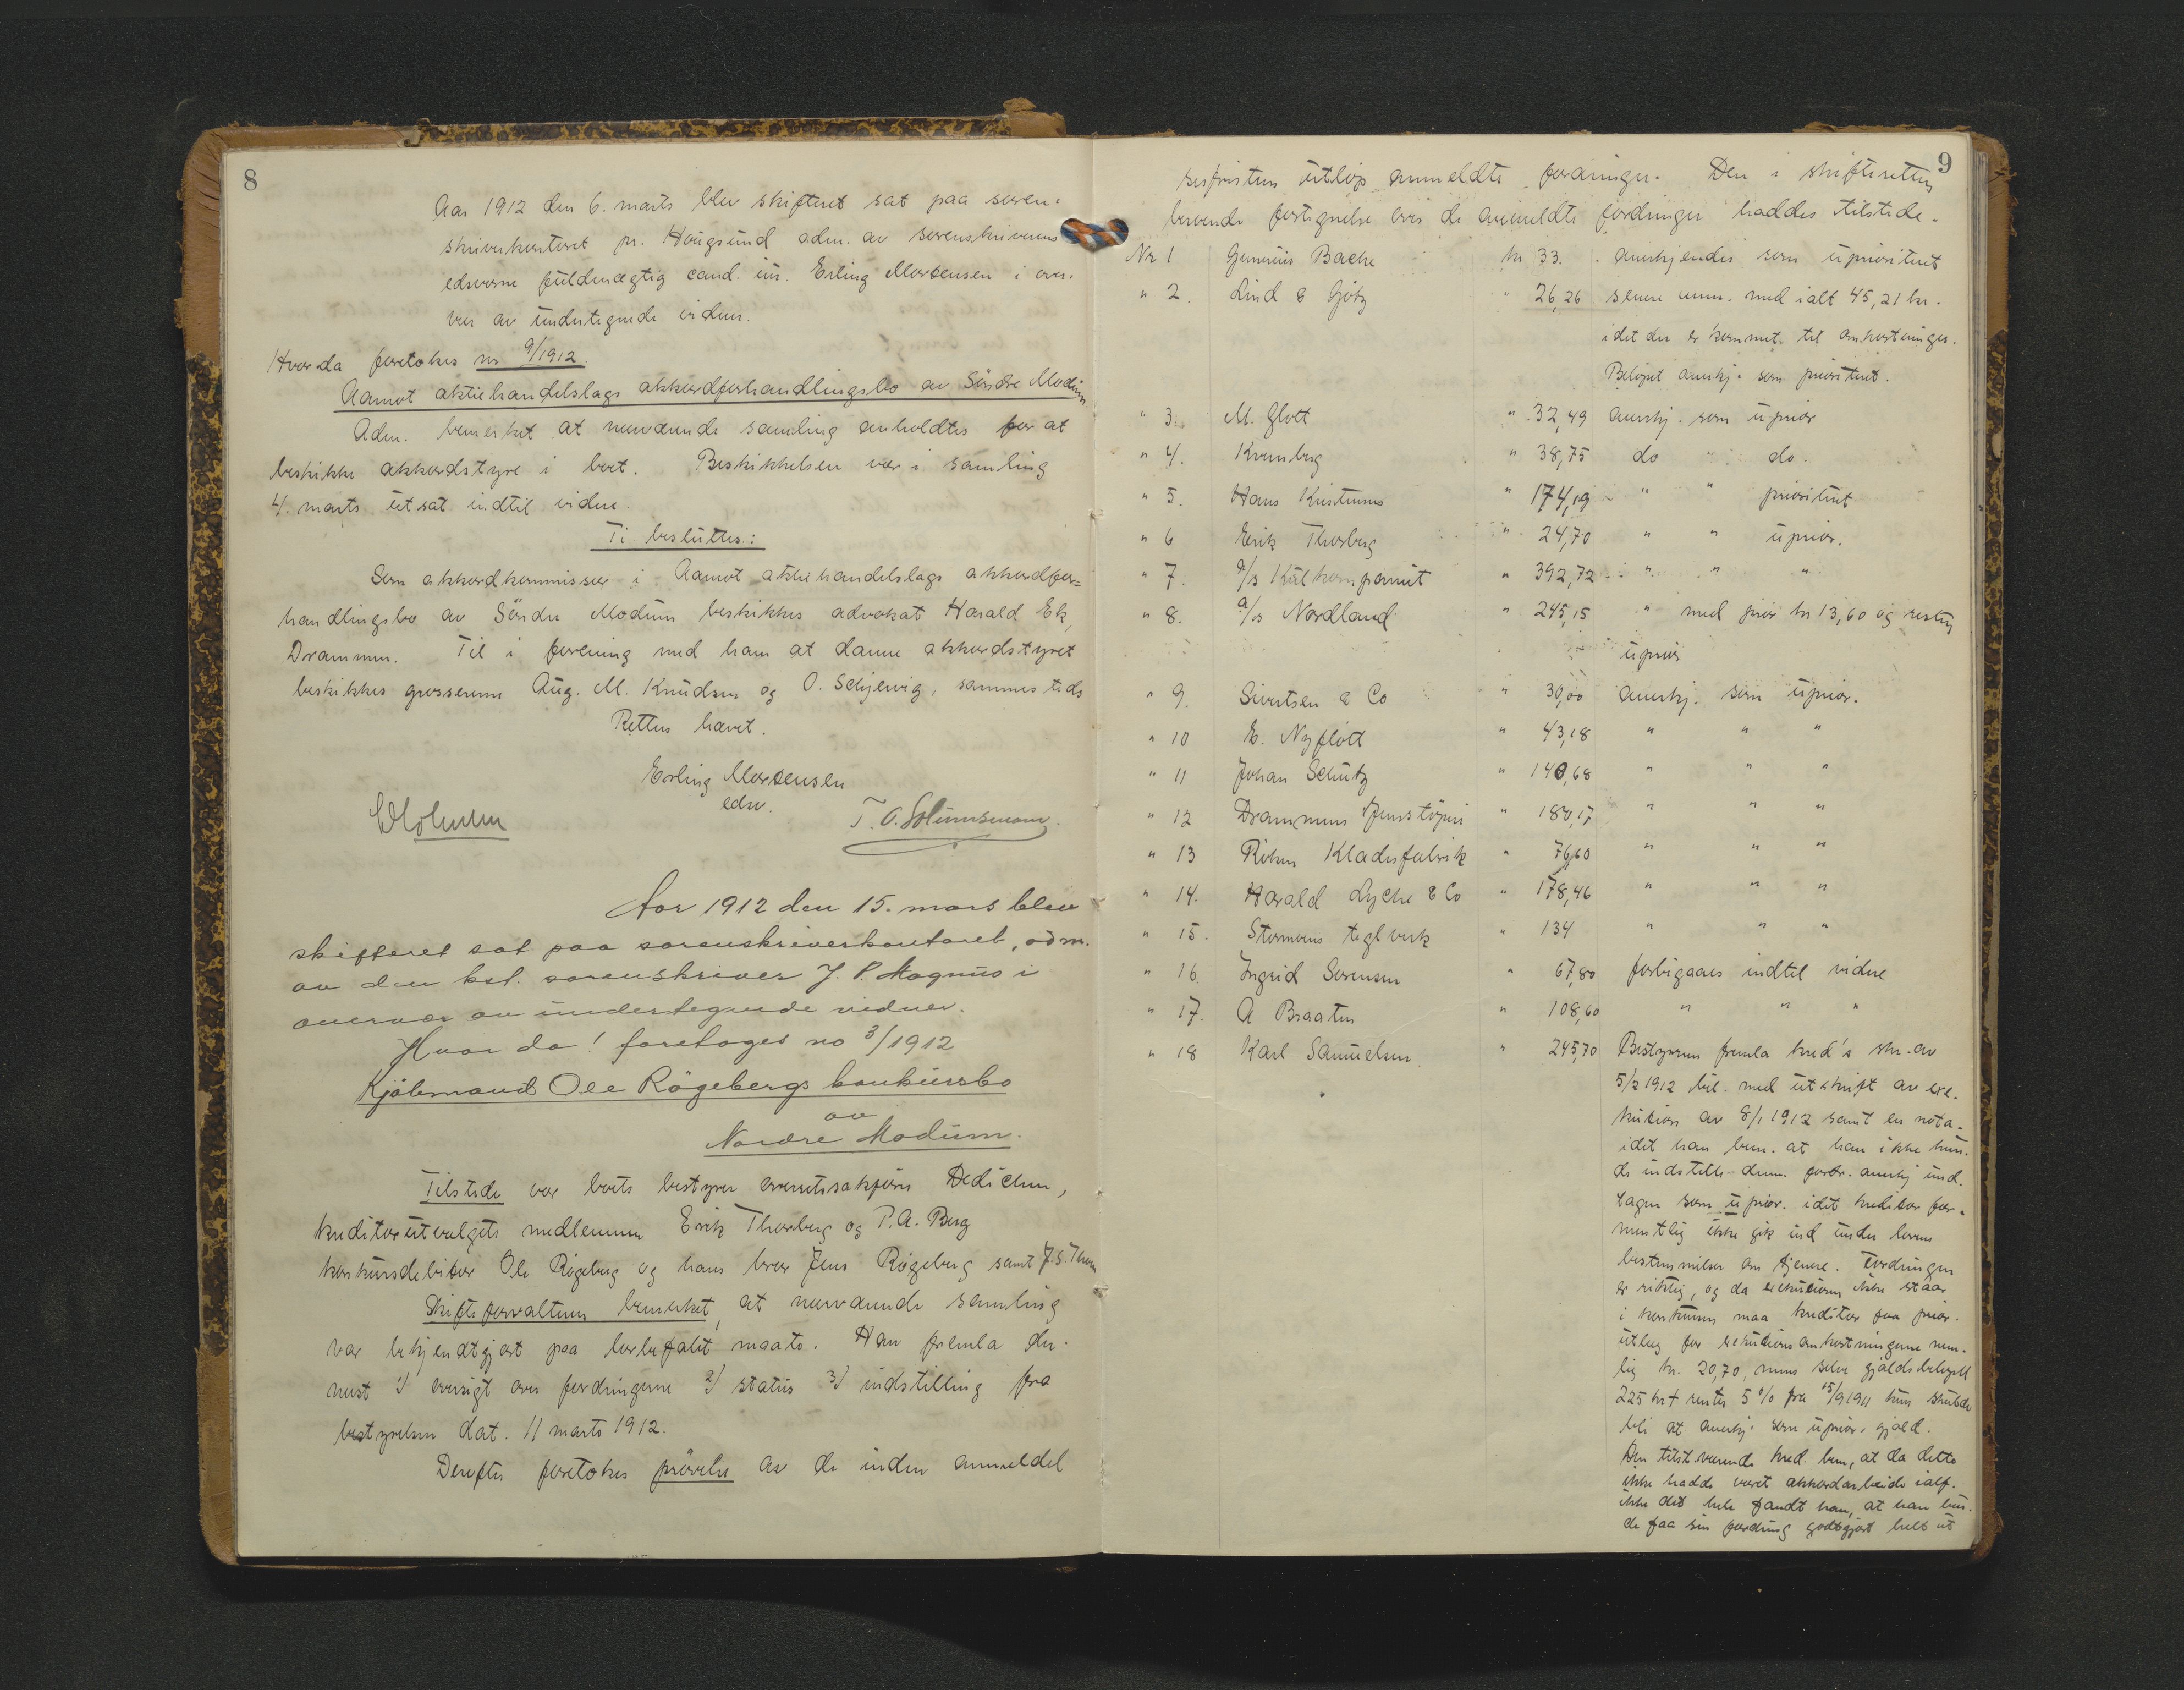 8
Aar 1912 den 6. marts blev skifteret sat paa soren-
skriverkontoret pr. Hougsund adm. av sorenskriverens
edsvorne fuldmægtig cand. jur. Erling Mortensen i over-
vær av undertegnede vidner.
Hvor da foretokes nr 9/1912
Aamot aktiehandelslags akkordforhandlingsbo av Søndre Modum
Adm. bemerket at nærværende samling anholdtes for at
beskikke akkordstyre i boet. Beskikkelsen var i samling
4. marts utsat indtil videre.
Ti besluttes:
Som akkordkommissær i Aamot aktiehandelslags akkordfor-
handlingsbo av Søndre Modum beskikkes advokat Harald Ek,
Drammen. Til i forening med ham at danne akkordstyret
beskikkes grossererne Aug. M. Knudsen og O. Schjelvig, sammesteds
Retten hævet.
Erling Mortensen
edsv.
Aar 1912 den 15. mars blev
skifteret sat paa sorenskriverkontoret, adm.
av den kst. sorenskriver J. P. Magnus i
overvær av undertegnede vidner.
Hvor da! foretoges no 3/1912
Kjøbmand Ole Røgebergs konkursbo
av
Nordre Modum.
Tilstede var boets bestyrer overretssakfører Dedichen,
kreditorutvalgets medlemmer Erik Thorberg og P. A. Berg
konkursdebitor Ole Røgeberg og hans bror Jens Røgeberg samt J. S.
Skifteforvalteren bemerket, at nærværende samling
var bekjendtgjort paa lovbefalet maate. Han fremla der-
næst 1) oversigt over fordringerne 2) status 3) indstilling fra
bestyrelsen dat. 11 marts 1912.
Derefter foretokes prøvelse av de inden anmeldel
9
sesfristens utløp anmeldte fordringer. Den i skifteretten
beroende fortegnelse over de anmeldte fordringer haddes tilstede.
Nr 1 Gunerius Bache kr 33. anerkjendes som uprioritert
" 2. Lind & Götz " 26,26 senere anm. med ialt 45,21 kr.
idet der er kommet til omkostninger.
Beløpet anerkj. som prioritert.
" 3. M. Glott " 32,49 anerkj. som uprior
" 4. Kremberg " 38,75 do " do.
" 5. Hans Kristensen " 174,19 " " prioritert
" 6 Erik Thorberg " 24,70 " " uprior.
" 7. a/s Kulkompaniet " 392,72 " " "
" 8. a/s Nordland " 245,15 " med prior kr 13,60 og resten
uprior
" 9. Sivertsen & Co " 30,00 anerkj. som uprior.
" 10 E. Nyfløtt " 43,18 " " "
" 11 Johan Schutz " 140,68 " " "
" 12 Drammens Jernstøperi " 180,17 " " "
" 13 Kladefabrik " 76,60 " " "
" 14. Harald Lyche & Co " 178,46 " " "
" 15. Stormoens teglverk " 134 " " "
" 16. Ingrid Sorensen " 67,80 forbigaaes indtil videre
" 17. A Braaten " 108,60 " " "
" 18 Karl Samuelsen " 245,70 Bestyreren fremla kred's skr. av
5/2 1912 bil. med utskrift av exe-
kution av 8/1 1912 samt en nota-
idet han bem. at han ikke kun-
de indstille denne fordr. anerkj und-
tagen som uprior. idet kreditor for-
mentlig ikke gik ind under lovens
bestemmelser om tjenere. Fordringen
er riktig, og da exekutionen ikke staar
i konkursen maa kreditor faa prior.
utlæg for exekutionsomkostningerne nem-
lig kr. 20,70, mens selve gjældsbeløpet
225 kr + renter 5 % fra 15/9 1911 kun skulde
bli at anerkj. som uprior. gjæld.
Den tilstedeværende kred. bem, at da dette
ikke hadde været akkordarbeide ialf.
ikke det hele fandt han, at han bur-
de faa sin fordring godtgjort helt ut